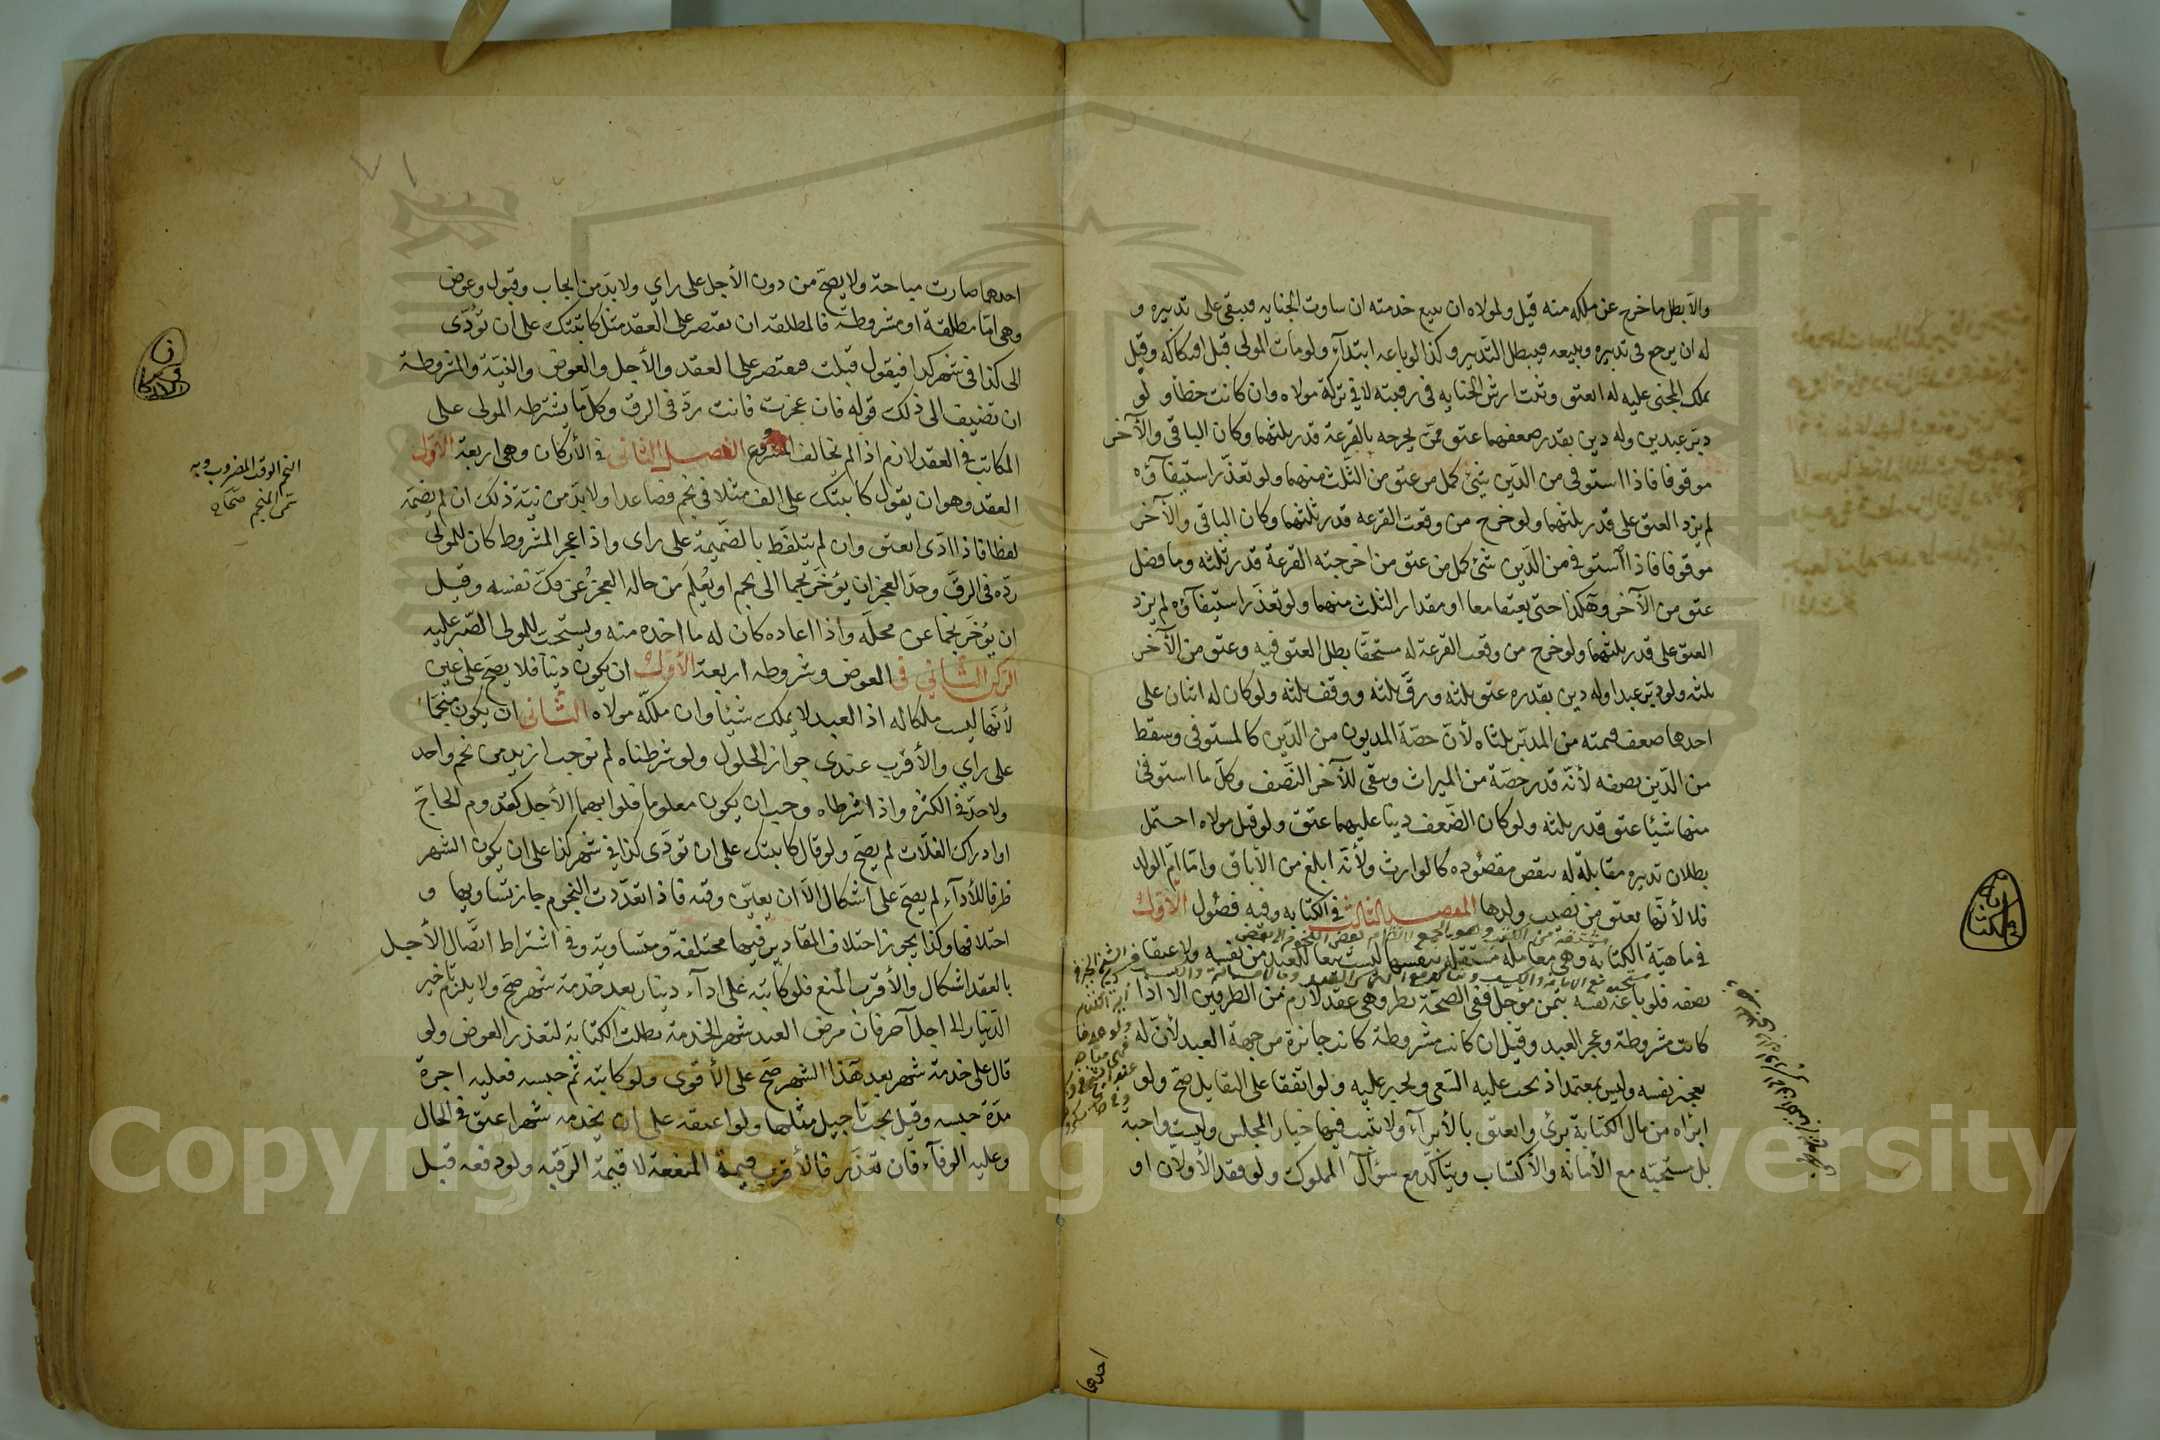 والا بطل ما خرج عن ملكه منه قيل ولمولاه ان يبيع خدمته ان ساوت الجنايه فيبقى على تدبيره و
له ان يرجع في تدبيره ويبيعه فيبطل التدبير وكذا لو باعه ابتدآء ولو مات المولى قبل افتكاكه وقبل
ملك المجنى عليه له انعتق وثبت ارش الجنايه في رقبته لا في تركة مولاه وان كانت خطأ ولو
دبر عبدين وله دين بقدر ضعفهما عتق ممن يخرجه بالقرعة قدر ثلثهما وكان الباقي والآخر
موقوفا فاذا استوفى من الدّين شئ كمل من عتق من الثلث منهما ولو تعذر استيفآؤه
لم يزد العتق على قدر ثلثهما ولو خرج من وقعت القرعه قدر ثلثهما وكان الباقي والآخر
موقوفا فاذا استوفى من الدّين شئ كمل من عتق من اخرجته القرعة قدر ثلثه وما فضل
عتق من الآخر وهكذا حتى يعتقا معا او مقدار الثلث منهما ولو تعذر استيفآؤه لم يزد
العتق على قدر ثلثهما ولو خرج من وقعت القرعة له مستحقا بطل العتق فيه وعتق من الآخر
ثلثه ولو دبر عبدا وله دين بقدره عتق ثلثه ورقّ ثلثه ووقف ثلثه ولو كان له اثنان على
احدهما ضعف قيمته من المدبّر ثلثاه لأن حصّة المديون من الدّين كالمستوفى وسقط
من الدّين نصفه لأنّه قدر حصّة من الميراث وبقى للآخر النّصف وكلّ ما استوفى
منها شيئا عتق قدر ثلثه ولو كان الضّعف دينا عليهما عتق ولو قتل مولاه احتمل
بطلان تدبيره مقابلة له بنقيض مقصوده كالوارث ولأنّه ابلغ من الاباق وامّا امّ الولد
فلا لأنّها تعتق من نصيب ولدها المقصد الثالث في الكتابه وفيه فصول الأول
في ماهيّة الكتابه وهي معاملة مستقله بنفسها ليست بيعا للعبد من نفسه ولا عتقا
بصفه فلو باعه نفسه بثمن مؤجل ففي الصحّة نظر وهي عقد لازم من الطرفين الا اذا
كانت مشروطة وعجز العبد وقيل ان كانت مشروطة كانت جائزة من جهة العبد لأن له
يعجز نفسه وليس بمعتمد اذ يجب عليه السّعى ويجبر عليه ولو اتفقا على التقايل صحّ ولو
ابراه من مال الكتابة برئ وانعتق بالأبرآء ولا يثبت فيها خيار المجلس وليست واجبة
بل مستحبّه مع الأمانه والأكتساب ويتأكّد مع سؤال المملوك ولو فقد الأولان او
احدهما
احدهما صارت مباحة ولا يصحّ من دون الأجل على راي ولا بدّ من ايجاب وقبول وعوض
وهي امّا مطلقة او مشروطة فالمطلقه ان يقتصر على العقد مثل كاتبتك على أن تؤدّى
الى كذا في شهر كذا فيقول قبلت فيقتصر على العقد والأجل والعوض والنيّة والمشروطة
ان تضيف الى ذلك قوله فان عجزت فانت ردّ في الرق وكلّ ما يشترطه المولى على
المكاتب في العقد لازم اذا لم يخالف المشروع الفصل الثاني في الأركان وهي اربعة الأول
العقد وهو ان يقول كاتبتك على الف مثلا في نجم فصاعدا ولا بدّ من نيّة ذلك ان لم يضمّه
لفظا فاذا ادّى انعتق وان لم يتلفّظ بالضّميمة على راى واذا عجز المشروط كان للمولى
ردّه في الرقّ وحدّ العجز ان يؤخر نجما الى نجم او يُعلم من حاله العجز عن فكّ نفسه وقيل
ان يؤخر نجما عن محلّه واذا اعاده كان له ما اخذه منه ويستحب للمولى الصّبر عليه
الركن الثاني في العوض وشروطه اربعة الأول ان يكون دينا فلا يصحّ على عين
لأنّها ليست ملكا له اذ العبد لا يملك شيئا وان ملكّه مولاه الثاني ان يكون منجّما
على راي والأقرب عندى جواز الحلول ولو شرطناه لم نوجب ازيد من نجم واحد
ولا حدّ في الكثرة واذا شرطاه وجب ان يكون معلوما فلو ابهما الأجل كقدوم الحاجّ
او ادراك الغلّات لم يصحّ ولو قال كاتبتك على ان تؤدّى كذا في شهر كذا على ان يكون الشهر
ظرفا للأدآء لم يصحّ على اشكال الّا ان يعيّن وقته فاذا تعدّدت النجوم جاز تساويها و
اختلافها وكذا يجوز اختلاف المقادير فيهما مختلفة ومتساوية وفي اشتراط اتّصال الأجل
بالعقد اشكال والأقرب المنع فلو كاتبه على ادآء دينار بعد خدمة شهر صحّ ولا يلزم تأخير
الدّينار الى اجل آخر فان مرض العبد شهر الخدمة بطلت الكتابة لتعذر العوض ولو
قال على خدمة شهر بعد هذا الشهر صحّ على الأقوى ولو كاتبه ثم حبسه فعليه اجرة
مدّة حبسه وقيل يجب تأجيل مثلها ولو اعتقه على ان يخدمه شهرا عتق في الحال
وعليه الوفآء فان تعذّر فالأقرب قيمة المنفعة لا قيمة الرّقبه ولو دفعه قبل
النجم الوقت المضروب وبه
سمّى المنجم صحاح
Copyright © King Saud University